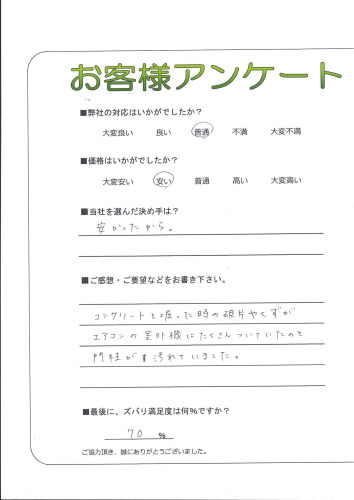 お客様アンケート
■弊社の対応はいかがでしたか？
大変良い 良い 普通 不満 大変不満
■価格はいかがでしたか？
大変安い 安い 普通 高い 大変高い
■当社を選んだ決め手は？
安かったから。
■ご感想・ご要望などをお書き下さい。
コンクリートを った時の破片やくずが
エアコンの室外機にたくさんついていたのと
門柱が 汚れていました。
■最後に、ズバリ満足度は何%ですか？
70 %
ご協力頂き、誠にありがとうございました。